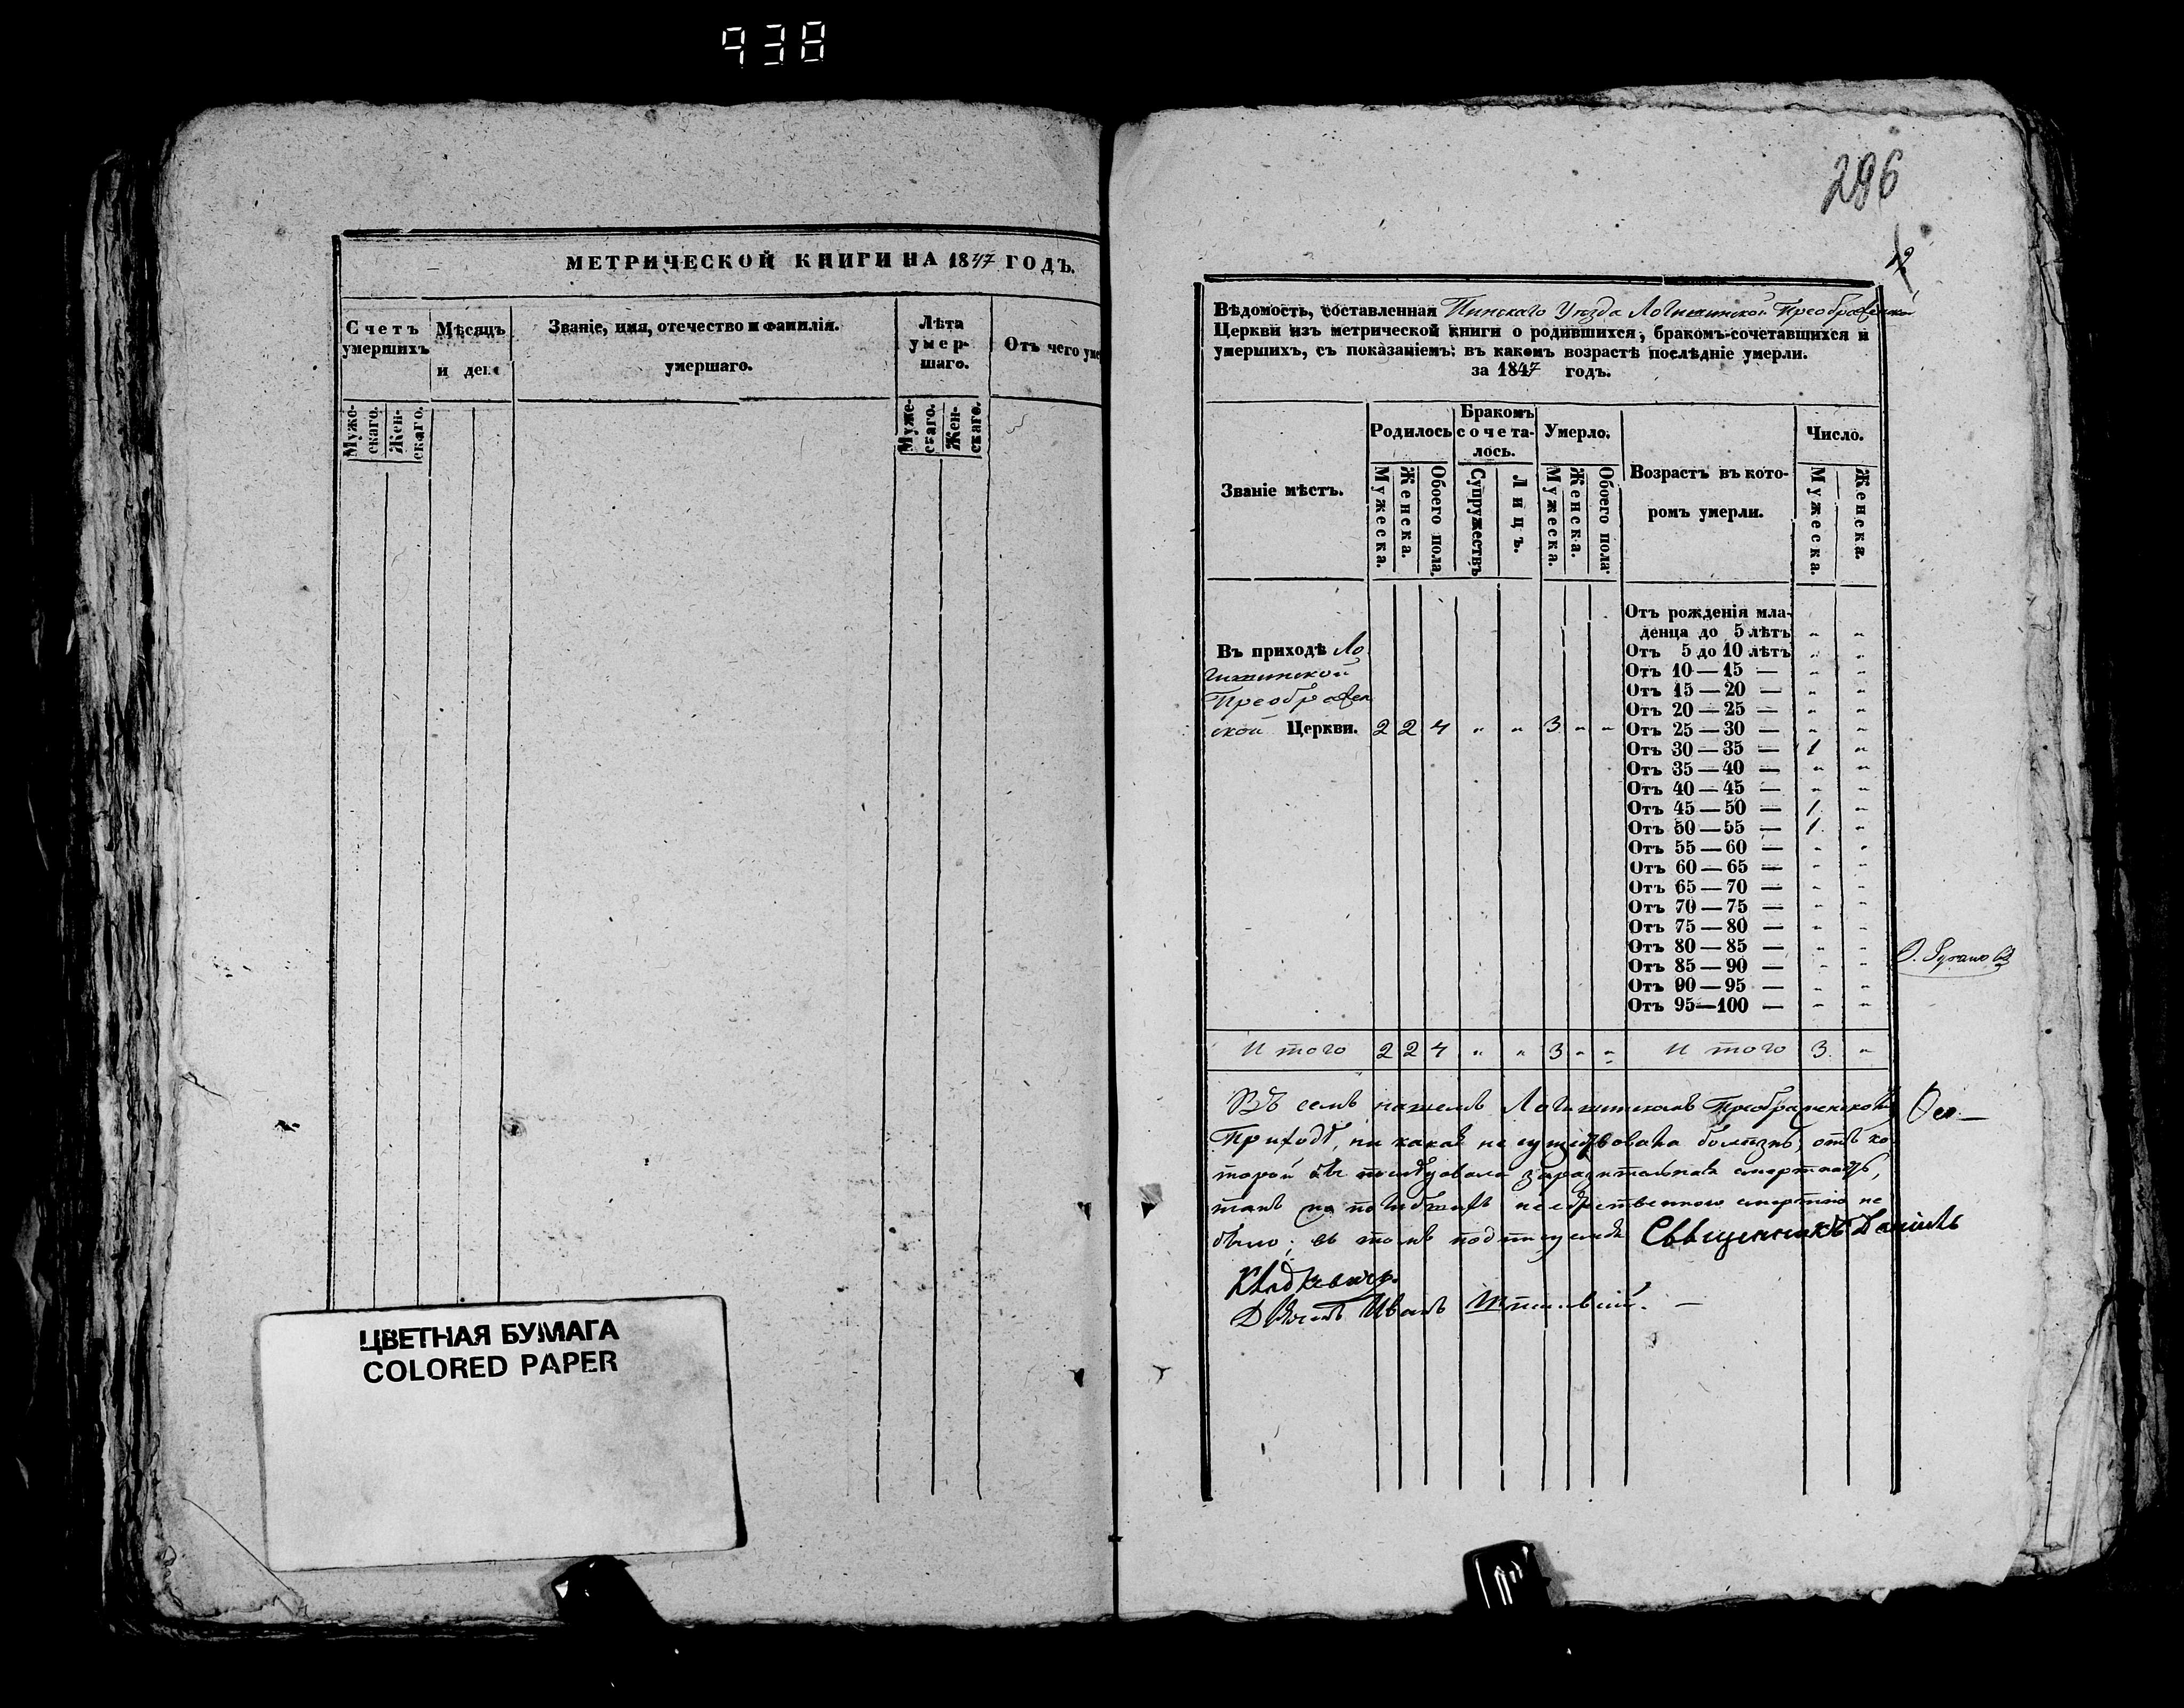 938
МЕТРИЧЕСКОЙ КНИГИ НА 1847 ГОДЪ.
Счетъ умершихъ
Мужескаго.
Женскаго.
Мѣсяцъ и день
Званіе, имя, отечество и фамилія.
умершаго.
Лѣта умершаго.
Мужескаго.
Женскаго.
Отъ чего уме
ЦВЕТНАЯ БУМАГА
COLORED PAPER
286
Вѣдомость, составленная Пинскаго Уѣзда Логишинской Преображенской
Церкви изъ метрической книги о родившихся, бракомъ-сочетавшихся и
умершихъ, съ показаніемъ: въ какомъ возрастѣ послѣдніе умерли.
за 1847 годъ.
Званіе мѣстъ.
Родилось
Мужеска.
Женска.
Обоего пола.
Бракомъ сочеталось.
Супружествъ
Лицъ.
Умерло.
Мужеска.
Женска.
Обоего пола
Возрастъ въ кото-
ромъ умерли.
Число.
Мужеска.
Женска.
Въ приходѣ Ло
гишинской
Преображен
ской Церкви. 2 2 4 " " 3 " "
Отъ рожденія мла-
денца до 5 лѣтъ " "
Отъ 5 до 10 лѣтъ " "
Отъ 10 — 15 — " "
Отъ 15 — 20 — " "
Отъ 20 — 25 — " "
Отъ 25 — 30 — " "
Отъ 30 — 35 — 1 "
Отъ 35 — 40 — " "
Отъ 40 — 45 — " "
Отъ 45 — 50 — 1 "
Отъ 50 — 55 — 1 "
Отъ 55 — 60 — " "
Отъ 60 — 65 — " "
Отъ 65 — 70 — " "
Отъ 70 — 75 — " "
Отъ 75 — 80 — " "
Отъ 80 — 85 — " "
Отъ 85 — 90 — " "
Отъ 90 — 95 — " "
Отъ 95—100 — " "
Итого 2 2 4 " " 3 " " Итого 3 "
Въ семъ нашемъ Логишинскомъ Преображенскомъ
Приходѣ, ни какая не существовала болѣзнь, отъ ко
торой бы послѣдовала заразительная смертность,
такъ
было; въ томъ Священникъ Даніилъ
Дьячекъ Иванъ